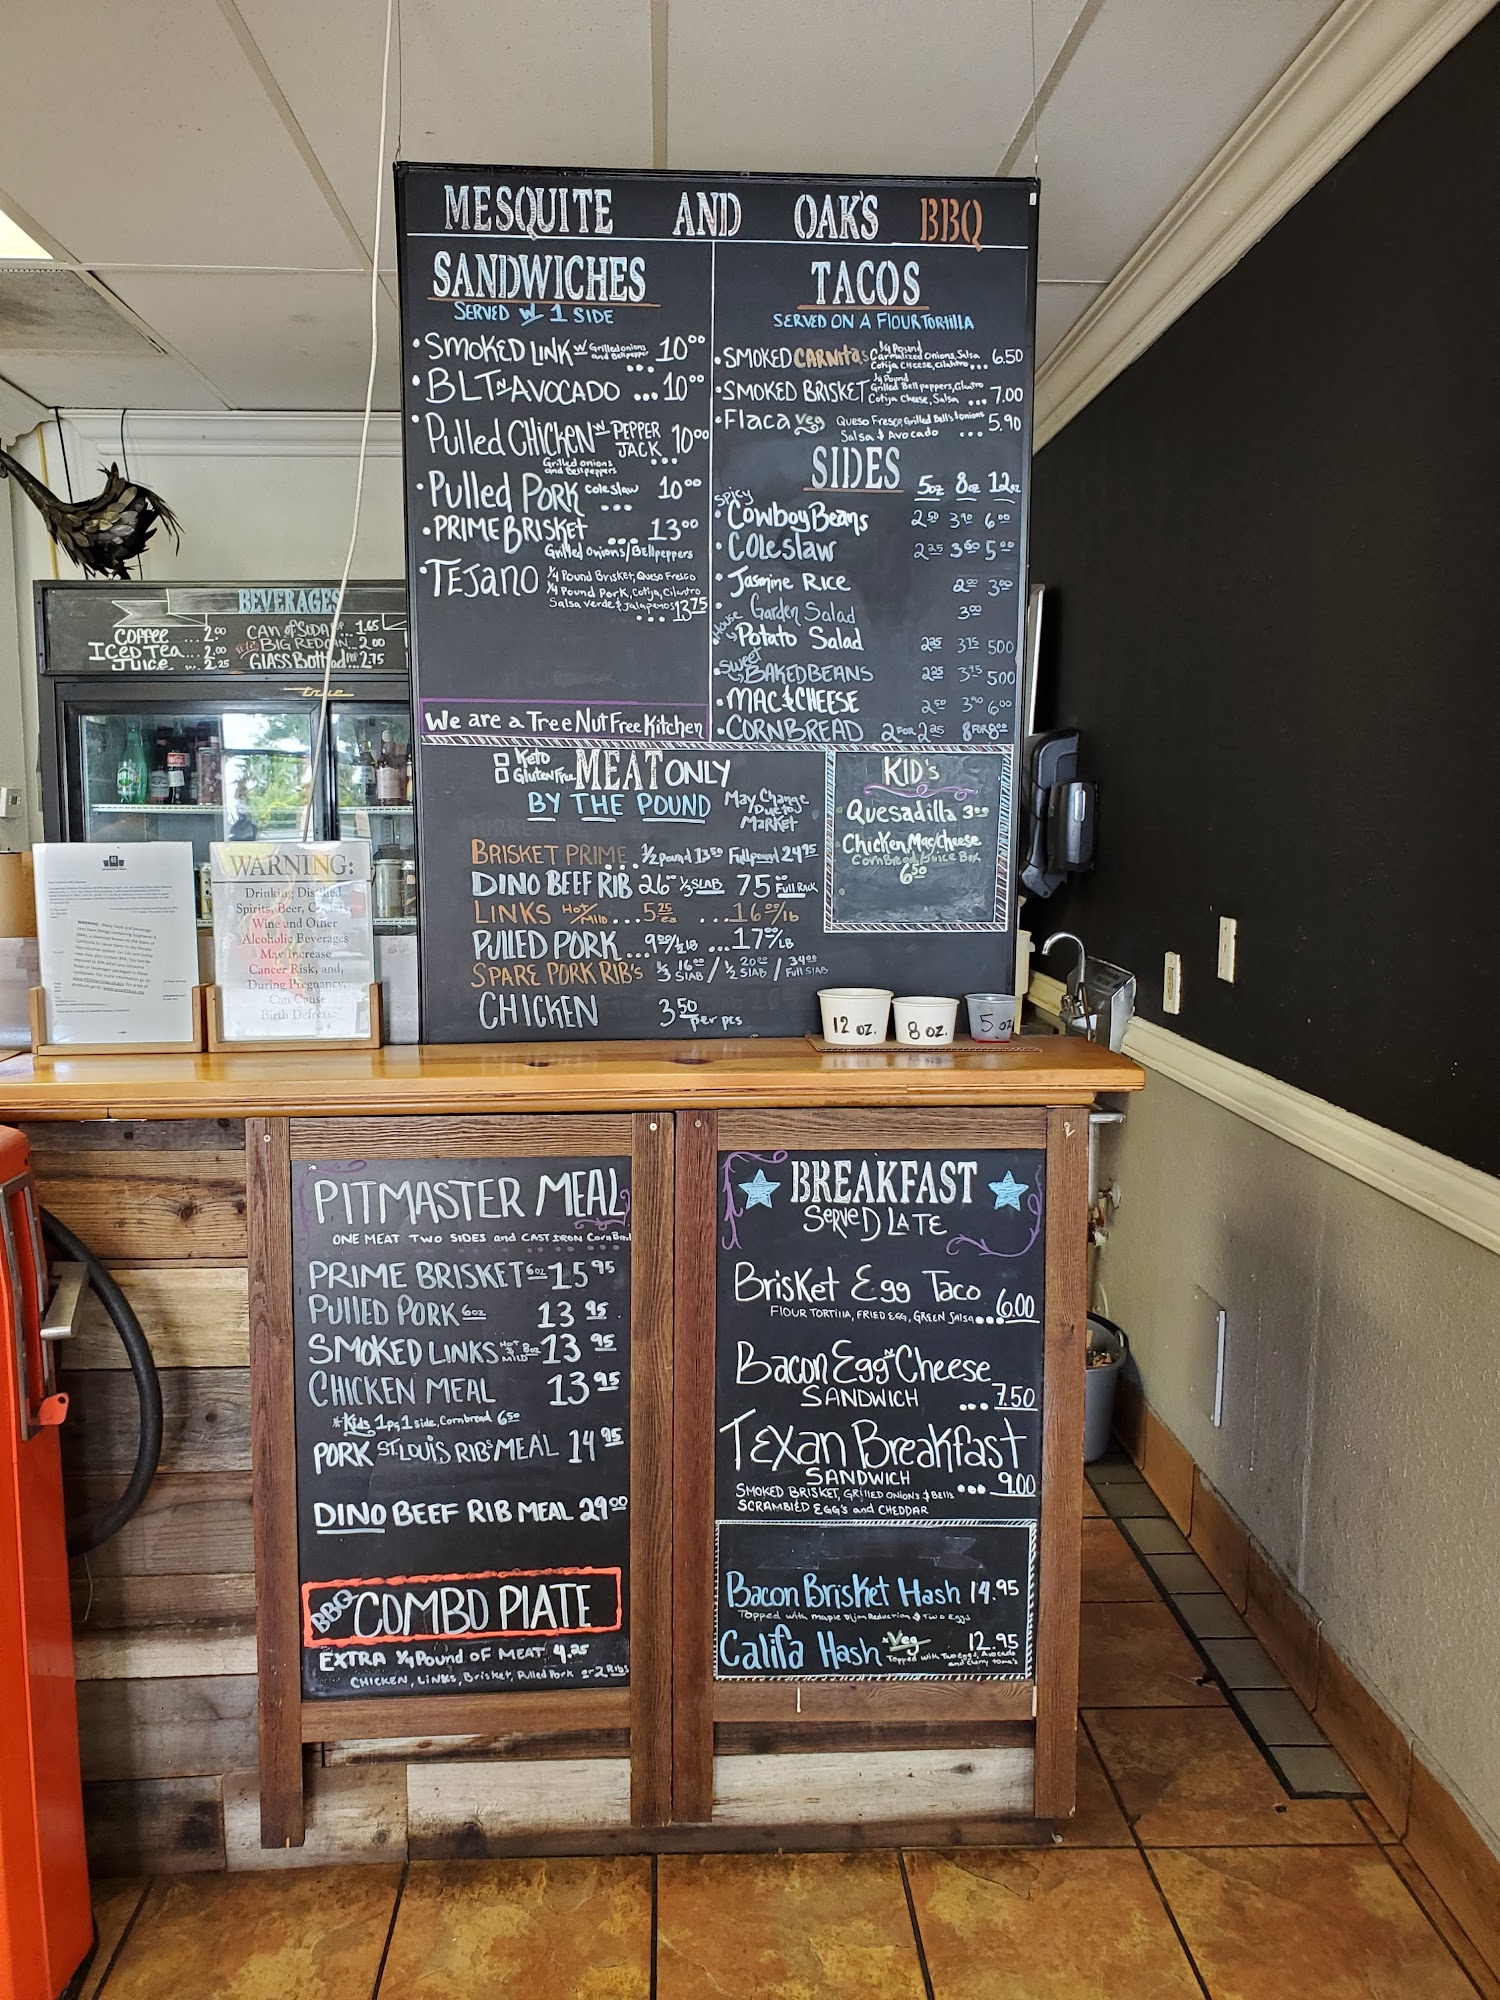 MESQUITE AND OAK'S BBQ
SANDWICHES
SERVED W/ 1 SIDE
• SMOKED LINK W/ Grilled onions and Bellpepper ... 10⁰⁰
• BLT N AVOCADO ... 10⁰⁰
• Pulled CHICKEN W/ PEPPER JACK ... 10⁰⁰
Grilled onions and Bellpeppers
• Pulled PORK coleslaw ... 10⁰⁰
• PRIME BRISKET ... 13⁰⁰
Grilled onions/Bellpeppers
• TEJANO ¼ Pound Brisket, Queso Fresco
¼ Pound Pork, Cotija, Cilantro
Salsa Verde & Jalapenos 13⁷⁵
We are a Tree Nut Free Kitchen
TACOS
SERVED ON A FLOUR TORTILLA
• SMOKED CARNitas ¼ Pound Carmalized Onions, Salsa
Cotija CHeese, Cilantro ... 6.50
• SMOKED BRISKET ¼ Pound
Grilled Bell peppers, Cilantro
Cotija Cheese, Salsa ... 7.00
• Flaca Veg Queso Fresco, Grilled Bell's & onions
Salsa & Avocado ... 5.90
SIDES 5oz 8oz 12oz
• Spicy Cowboy Beans 2⁵⁰ 3⁹⁰ 6⁰⁰
• Coleslaw 2²⁵ 3⁶⁰ 5⁰⁰
• Jasmine Rice 2⁰⁰ 3⁰⁰
Garden Salad 3⁰⁰
House Potato Salad 2²⁵ 3⁷⁵ 5⁰⁰
• Sweet BAKED BEANS 2²⁵ 3⁷⁵ 5⁰⁰
• MAC & CHEESE 2⁵⁰ 3⁹⁰ 6⁰⁰
• CORNBREAD 2 FOR 2²⁵ 8 FOR 8⁰⁰
Keto
Gluten Free
MEAT ONLY
BY THE POUND
May Change Due to MARKET
BRISKET PRIME ... ½ pound 13⁵⁰ Full pound 24⁹⁵
DINO BEEF RIB 26⁰⁰ ⅓ SLAB 75⁰⁰ Full RACK
LINKS Hot/MILD ... 5²⁵ ea ... 16⁰⁰/lb
PULLED PORK ... 9⁰⁰/½ LB ... 17⁰⁰/LB
SPARE PORK RIB'S ⅓ 16⁰⁰ SLAB / ½ 20⁰⁰ SLAB / 34⁰⁰ Full SLAB
CHICKEN 3⁵⁰ per pcs
KID's
Quesadilla 3⁰⁰
Chicken, Mac/Cheese
CornBread/Juice Box
6⁵⁰
BEVERAGES
COFFEE .... 2.⁰⁰
ICED TEA .. 2.⁰⁰
JUICE ... 2.25
CAN of SODA ... 1.65
BIG RED CAN ... 2.00
GLASS Bottled ... 2.75
true
WARNING:
Drinking Distilled
Spirits, Beer, Coolers,
Wine and Other
Alcoholic Beverages
May Increase
Cancer Risk, and,
During Pregnancy,
Can Cause
Birth Defects.
12 oz.
8 oz.
5 oz
PITMASTER MEAL
ONE MEAT TWO SIDES and CAST IRON CornBread
PRIME BRISKET 6oz 15⁹⁵
PULLED PORK 6oz 13⁹⁵
SMOKED LINKS HOT & MILD 8oz 13⁹⁵
CHICKEN MEAL 13⁹⁵
*Kids 1pc, 1 side, Cornbread 6⁵⁰
PORK ST. LOUIS RIB'S MEAL 14⁹⁵
DINO BEEF RIB MEAL 29⁰⁰
BBQ COMBO PLATE
EXTRA ¼ Pound OF MEAT 4.25
CHICKEN, LINKS, Brisket, Pulled Pork or 2 Ribs
BREAKFAST
SERVED LATE
Brisket Egg Taco
FLOUR TORTILLA, FRIED EGG, GREEN Salsa ... 6.00
Bacon Egg N Cheese
SANDWICH ... 7.50
TEXAN Breakfast
SANDWICH ... 9.00
SMOKED BRISKET, GRILLED ONIONS & Bells
SCRAMBLED EGG'S and CHEDDAR
Bacon Brisket Hash 14.95
Topped with Maple Dijon Reduction & Two Eggs
Califa Hash *Veg 12.95
Topped with Two Eggs, Avocado
and cherry toma's